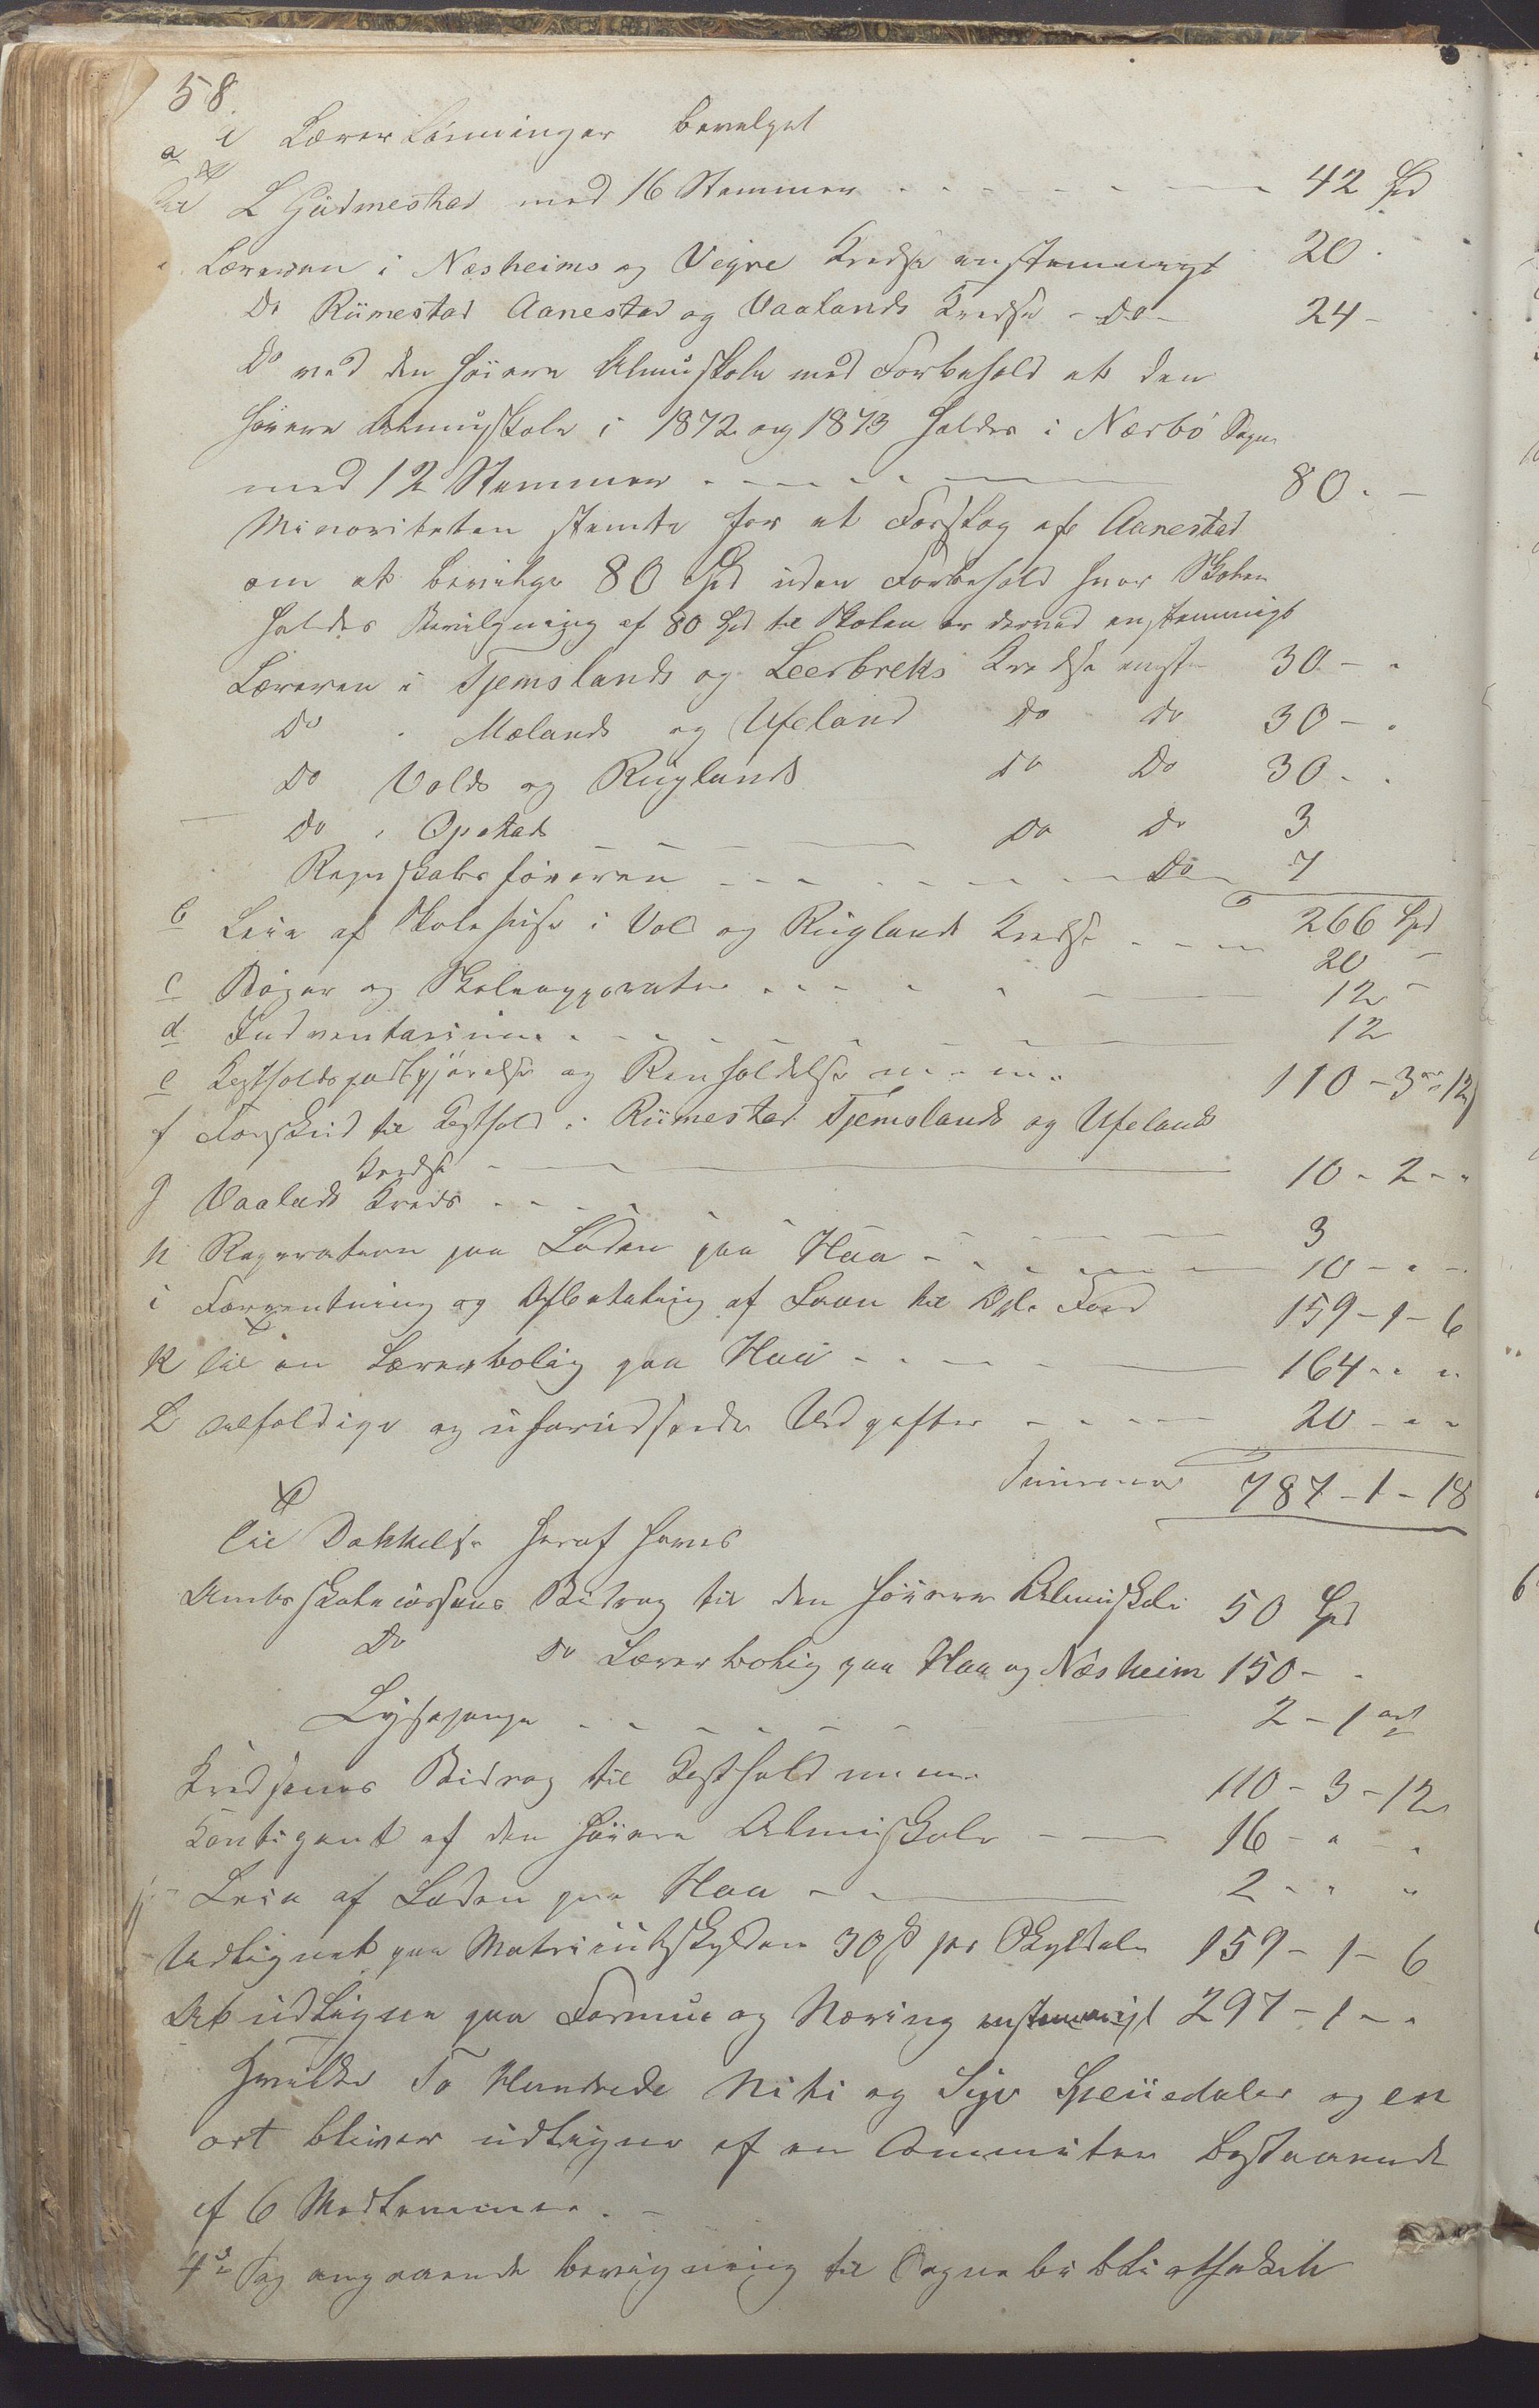 58.
a Lærer Lönninger bevilget
Til L Gudmestad med 16 Stemmer - - - 42 Spd
Læreren i Næsheims og Vigre Kredse enstemmigt 20 -
Do Rimestad Aanestad og Vaalands Kredse - Do - 24 -
Do ved den höiere Almuskole med Forbehold at den
höiere Almuskole i 1872 og 1873 holdes i Nærbö Sogn
med 12 Stemmer - - - 80 - -
Minoriteten stemte for et Forslag af Aanestad
om at bevilge 80 Spd uden Forbehold hvor Skolen
holdes Bevilgning af 80 Spd til Skolen er derved enstemmigt
Læreren i Tjemslands og Leerbreks Kredse enst 30 - -
Do - Mælands og Ueland Do Do 30 - -
Do Volds og Ruglands Do Do 30 - -
Do i Opstad Do Do 3
Regnskabsföreren - - - Do 7
266 Spd
b Leie af Skolehuse i Vold og Ruglands Kredse - - - 20 -
c Böger og Skoleapparater - - - 12 -
d Indventarium - - - 12
e Kostholdsgodtgjörelse og Renholdelse m. m. 110 - 3 ort 12 s
f Forskud til Kosthold i Rimestad Tjemslands og Uelands
Kredse - - - 10 - 2 - -
g Vaalands Kreds - - - 3
h Reperation paa Laden paa Haa - - - 10 - - -
i Forrentning og Afbetaling af Laan til Opl. Fond 159 - 1 - 6
k Til en Lærerbolig paa Haa - - - 164 - - -
L tilfeldige og uforudseede Udgifter - - - 20 - - -
Summa 787 - 1 - 18
Til Dekkelse heraf haves
Amtsskolecassens Bidrag til den höiere Almuskole 50 Spd
Do Do Lærerbolig paa Haa og Næsheim 150 - -
Lysepenge - - - 2 - 1 ort
Kredsenes Bidrag til Kosthold m.m. 110 - 3 - 12
Contigent af den höiere Almuskole - - 16 - - -
Leie af Laden paa Haa - - 2 - - -
Udlignet paa Matrikulskylden 30 s pr Skyldaler 159 - 1 - 6
At udligne paa Formue og Næring enstemmigt 297 - 1 - -
hvilke To Hundrede Niti og Syv Speciedaler og en
ort bliver udligne af en Committee bestaaende
af 6 Medlemmer. -
4de Sag angaaende bevilgning til Sognebibliotheket